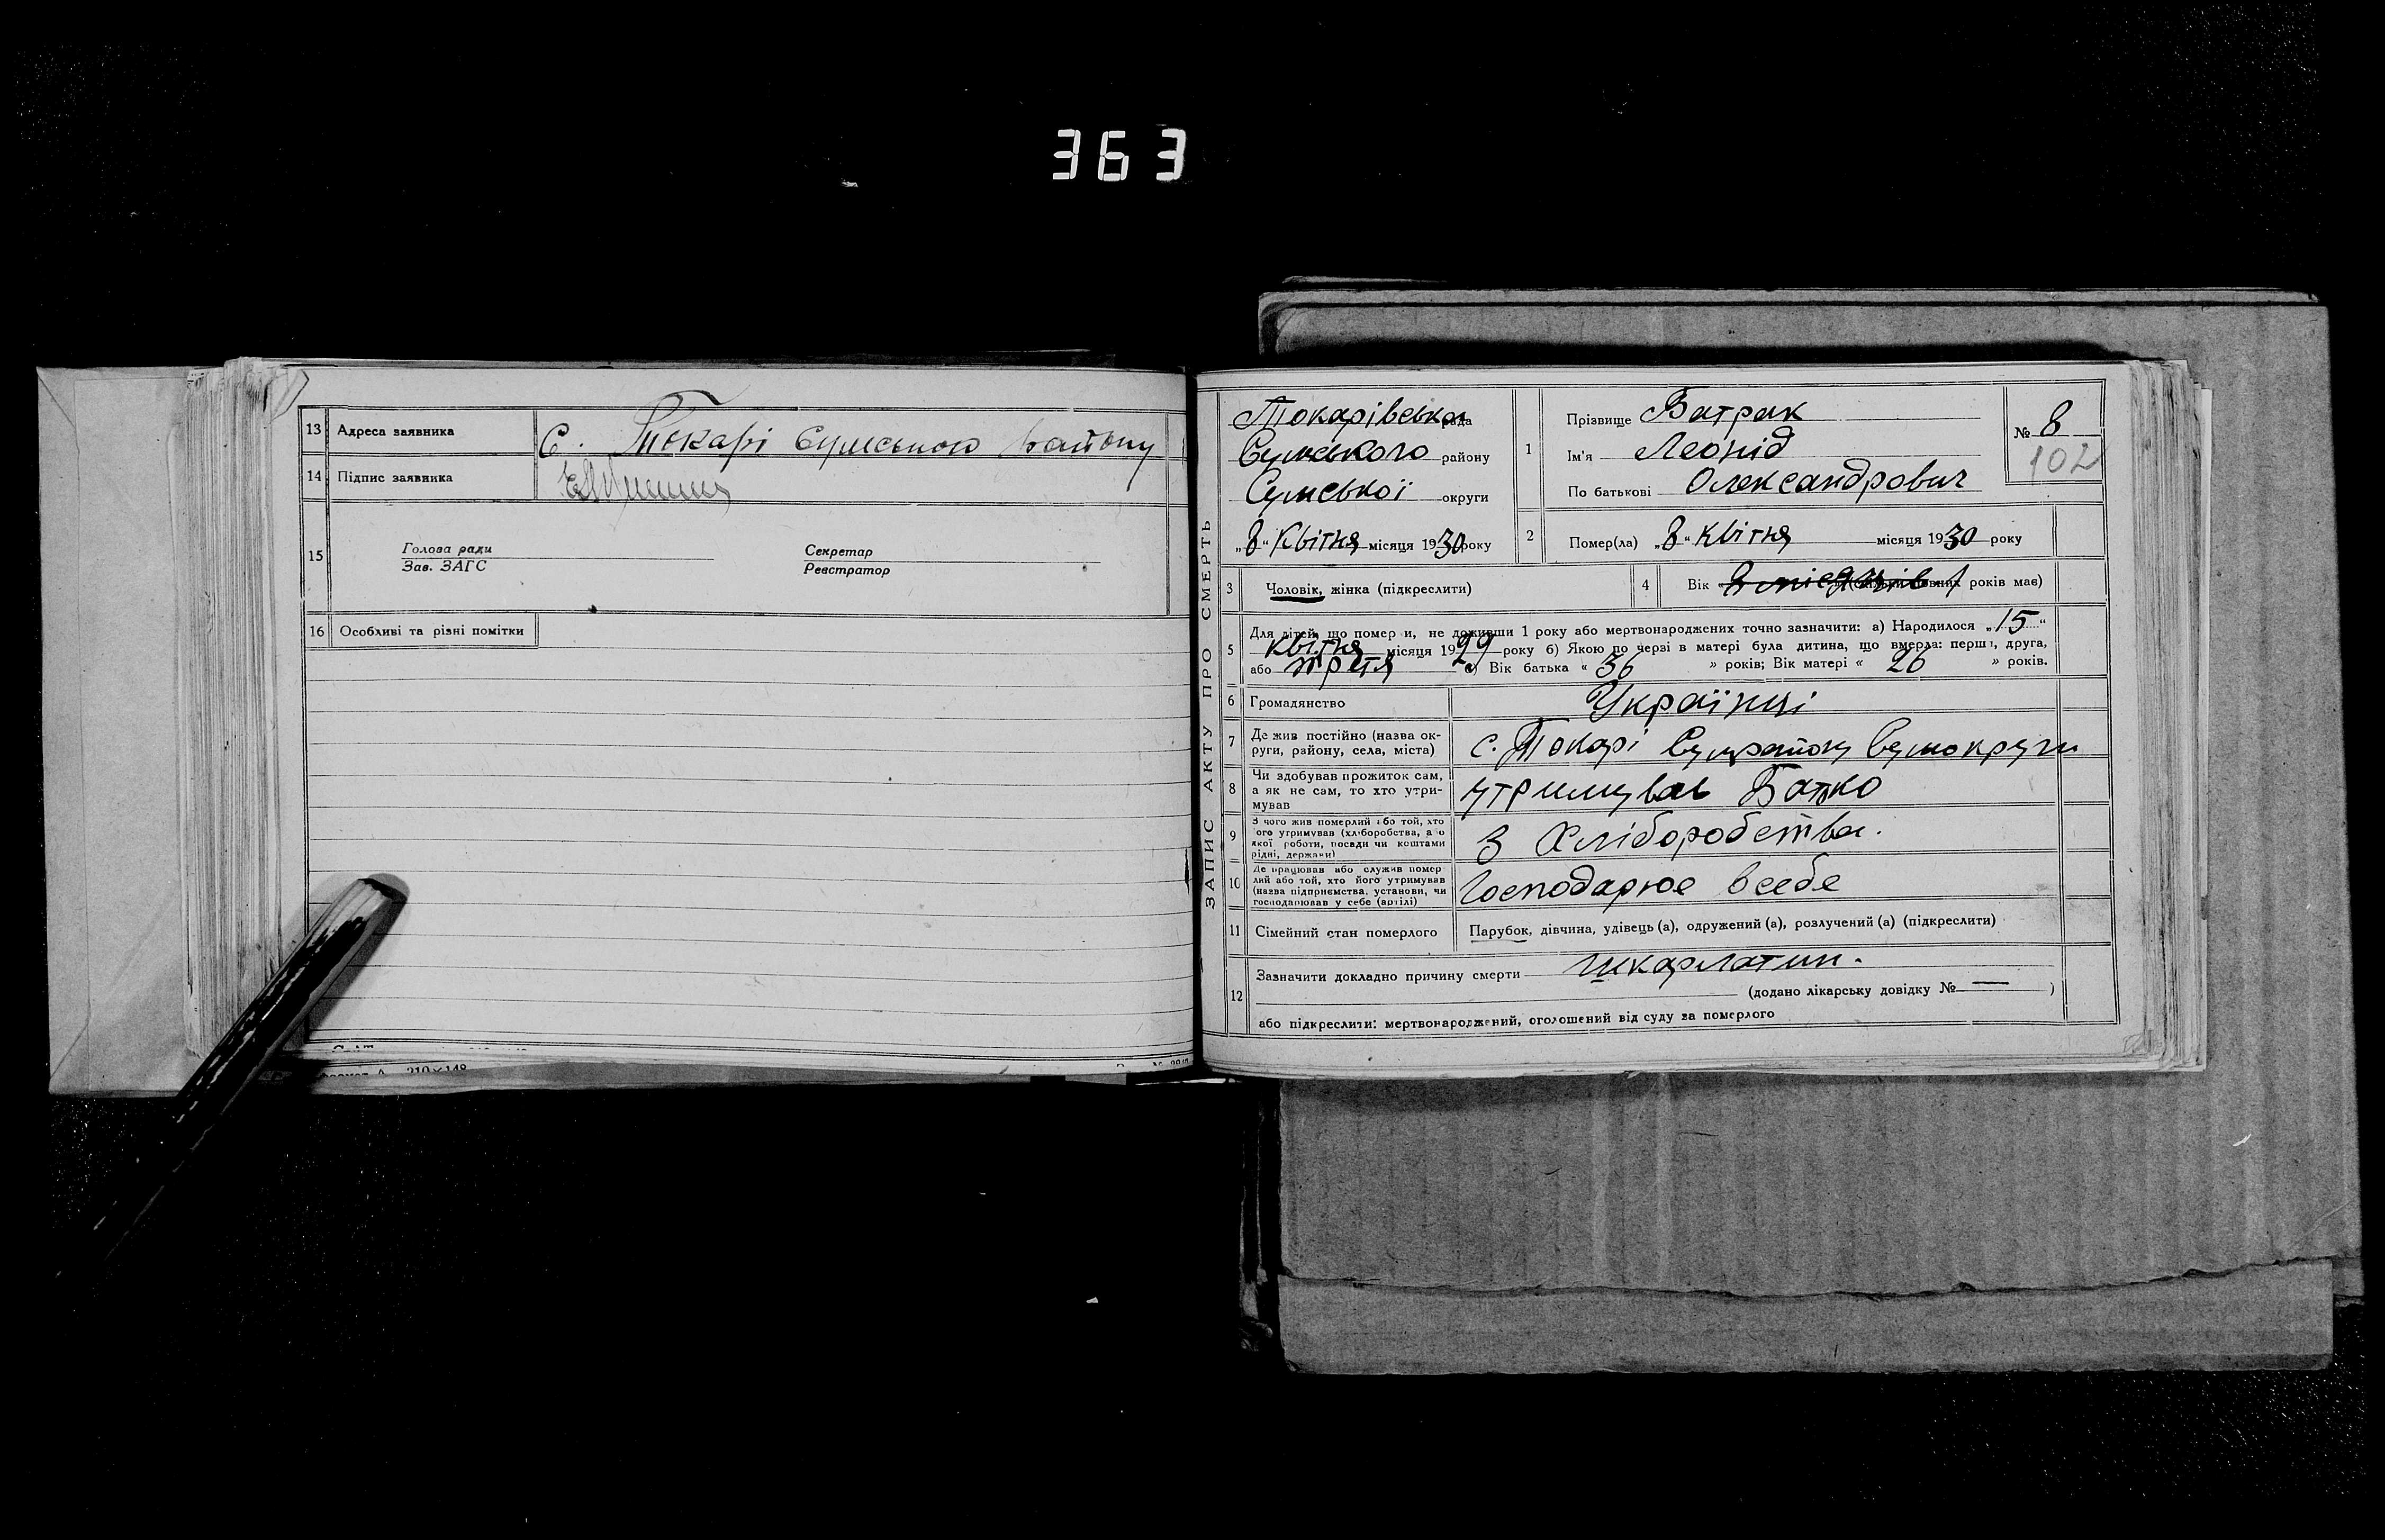 363
13 Адреса заявника С. Токарі Сумського Району
14 Підпис заявника
15 Голова ради Секретар
Зав. ЗАГС Реєстратор
16 Особливі та різні помітки
Формат А 210×148
ЗАПИС АКТУ ПРО СМЕРТЬ
Токарівська рада
Сумського району
Сумської округи
„8“ Квітня місяця 1930 року
1 Прізвище Батрак
Ім'я Леонід
По батькові Олександрович
№ 8
102
2 Помер(ла) „8“ Квітня місяця 1930 року
3 Чоловік, жінка (підкреслити)
4 Вік років має)
5 Для дітей, що померли, не доживши 1 року або мертвонароджених точно зазначити: а) Народилося „15“
квітня місяця 1929 року б) Якою по черзі в матері була дитина, що вмерла: перша, друга,
або третя в) Вік батька « 36 » років; Вік матері « 26 » років.
6 Громадянство Українці
7 Де жив постійно (назва ок-
руги, району, села, міста) с. Токарі Сумрайону Сумокруги
8 Чи здобував прожиток сам,
а як не сам, то хто утри-
мував утримував Батко
9 З чого жив померлий або той, хто
його утримував (хліборобства, або
якої роботи, посади чи коштами
рідні, держави) З Хліборобства.
10 Де працював або служив помер
лий або той, хто його утримував
(назва підприємства, установи, чи
господарював у себе (артілі) Господарює всебе
11 Сімейний стан померлого Парубок, дівчина, удівець (а), одружений (а), розлучений (а) (підкреслити)
12 Зазначити докладно причину смерти шкарлатин.
(додано лікарську довідку № — )
або підкреслити: мертвонароджений, оголошений від суду за померлого